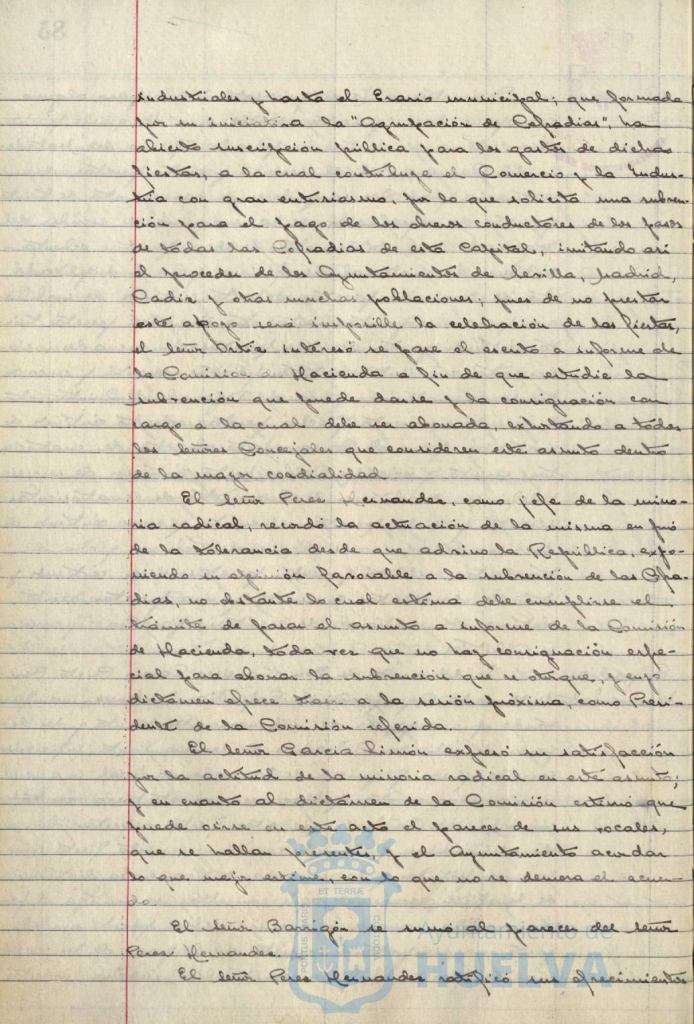 industriales y hasta el Erario municipal; que formada
por su iniciativa la "Agrupación de Cofradias", ha
abierto suscripción pública para los gastos de dichas
fiestas, a la cual contribuye el Comercio y la Indus-
tria con gran entusiasmo, por lo que solicita una subven-
ción para el pago de los obreros conductores de los pasos
de todas las Cofradias de esta Capital, imitando así
el proceder de los Ayuntamientos de Sevilla, Madrid,
Cadiz y otras muchas poblaciones, pues de no prestar
este apoyo será imposible la celebración de las fiestas,
el señor Ortiz interesó se pase el escrito a informe de
la Comisión de Hacienda a fin de que estudie la
subvención que puede darse y la consignación con
cargo a la cual debe ser abonada, exhortando a todos
los señores Concejales que consideren este asunto dentro
de la mayor cordialidad
El señor Perez Hernandez, como jefe de la mino-
ria radical, recordó la actuación de la misma en pró
de la tolerancia desde que advino la República, expo-
niendo su opinión favorable a la subvención de las Cofra-
dias, no obstante lo cual estima debe cumplirse el
trámite de pasar el asunto a informe de la Comisión
de Hacienda, toda vez que no hay consignación espe-
cial para abonar la subvención que se otorgue, y cuyo
dictámen ofrece traer a la sesión próxima, como Presi-
dente de la Comisión referida.
El señor García Limón expresó su satisfacción
por la actitud de la minoria radical en este asunto;
y en cuanto al dictámen de la Comisión estimó que
puede oirse en este acto el parecer de sus vocales,
que se hallan presentes, y el Ayuntamiento acordar
lo que mejor estime, con lo que no se demora el acuer-
do.
El señor Barrigón se sumó al parecer del señor
Perez Hernandez.
El señor Perez Hernandez ratificó sus ofrecimientos
ET TERRÆ
Ayuntamiento de
HUELVA